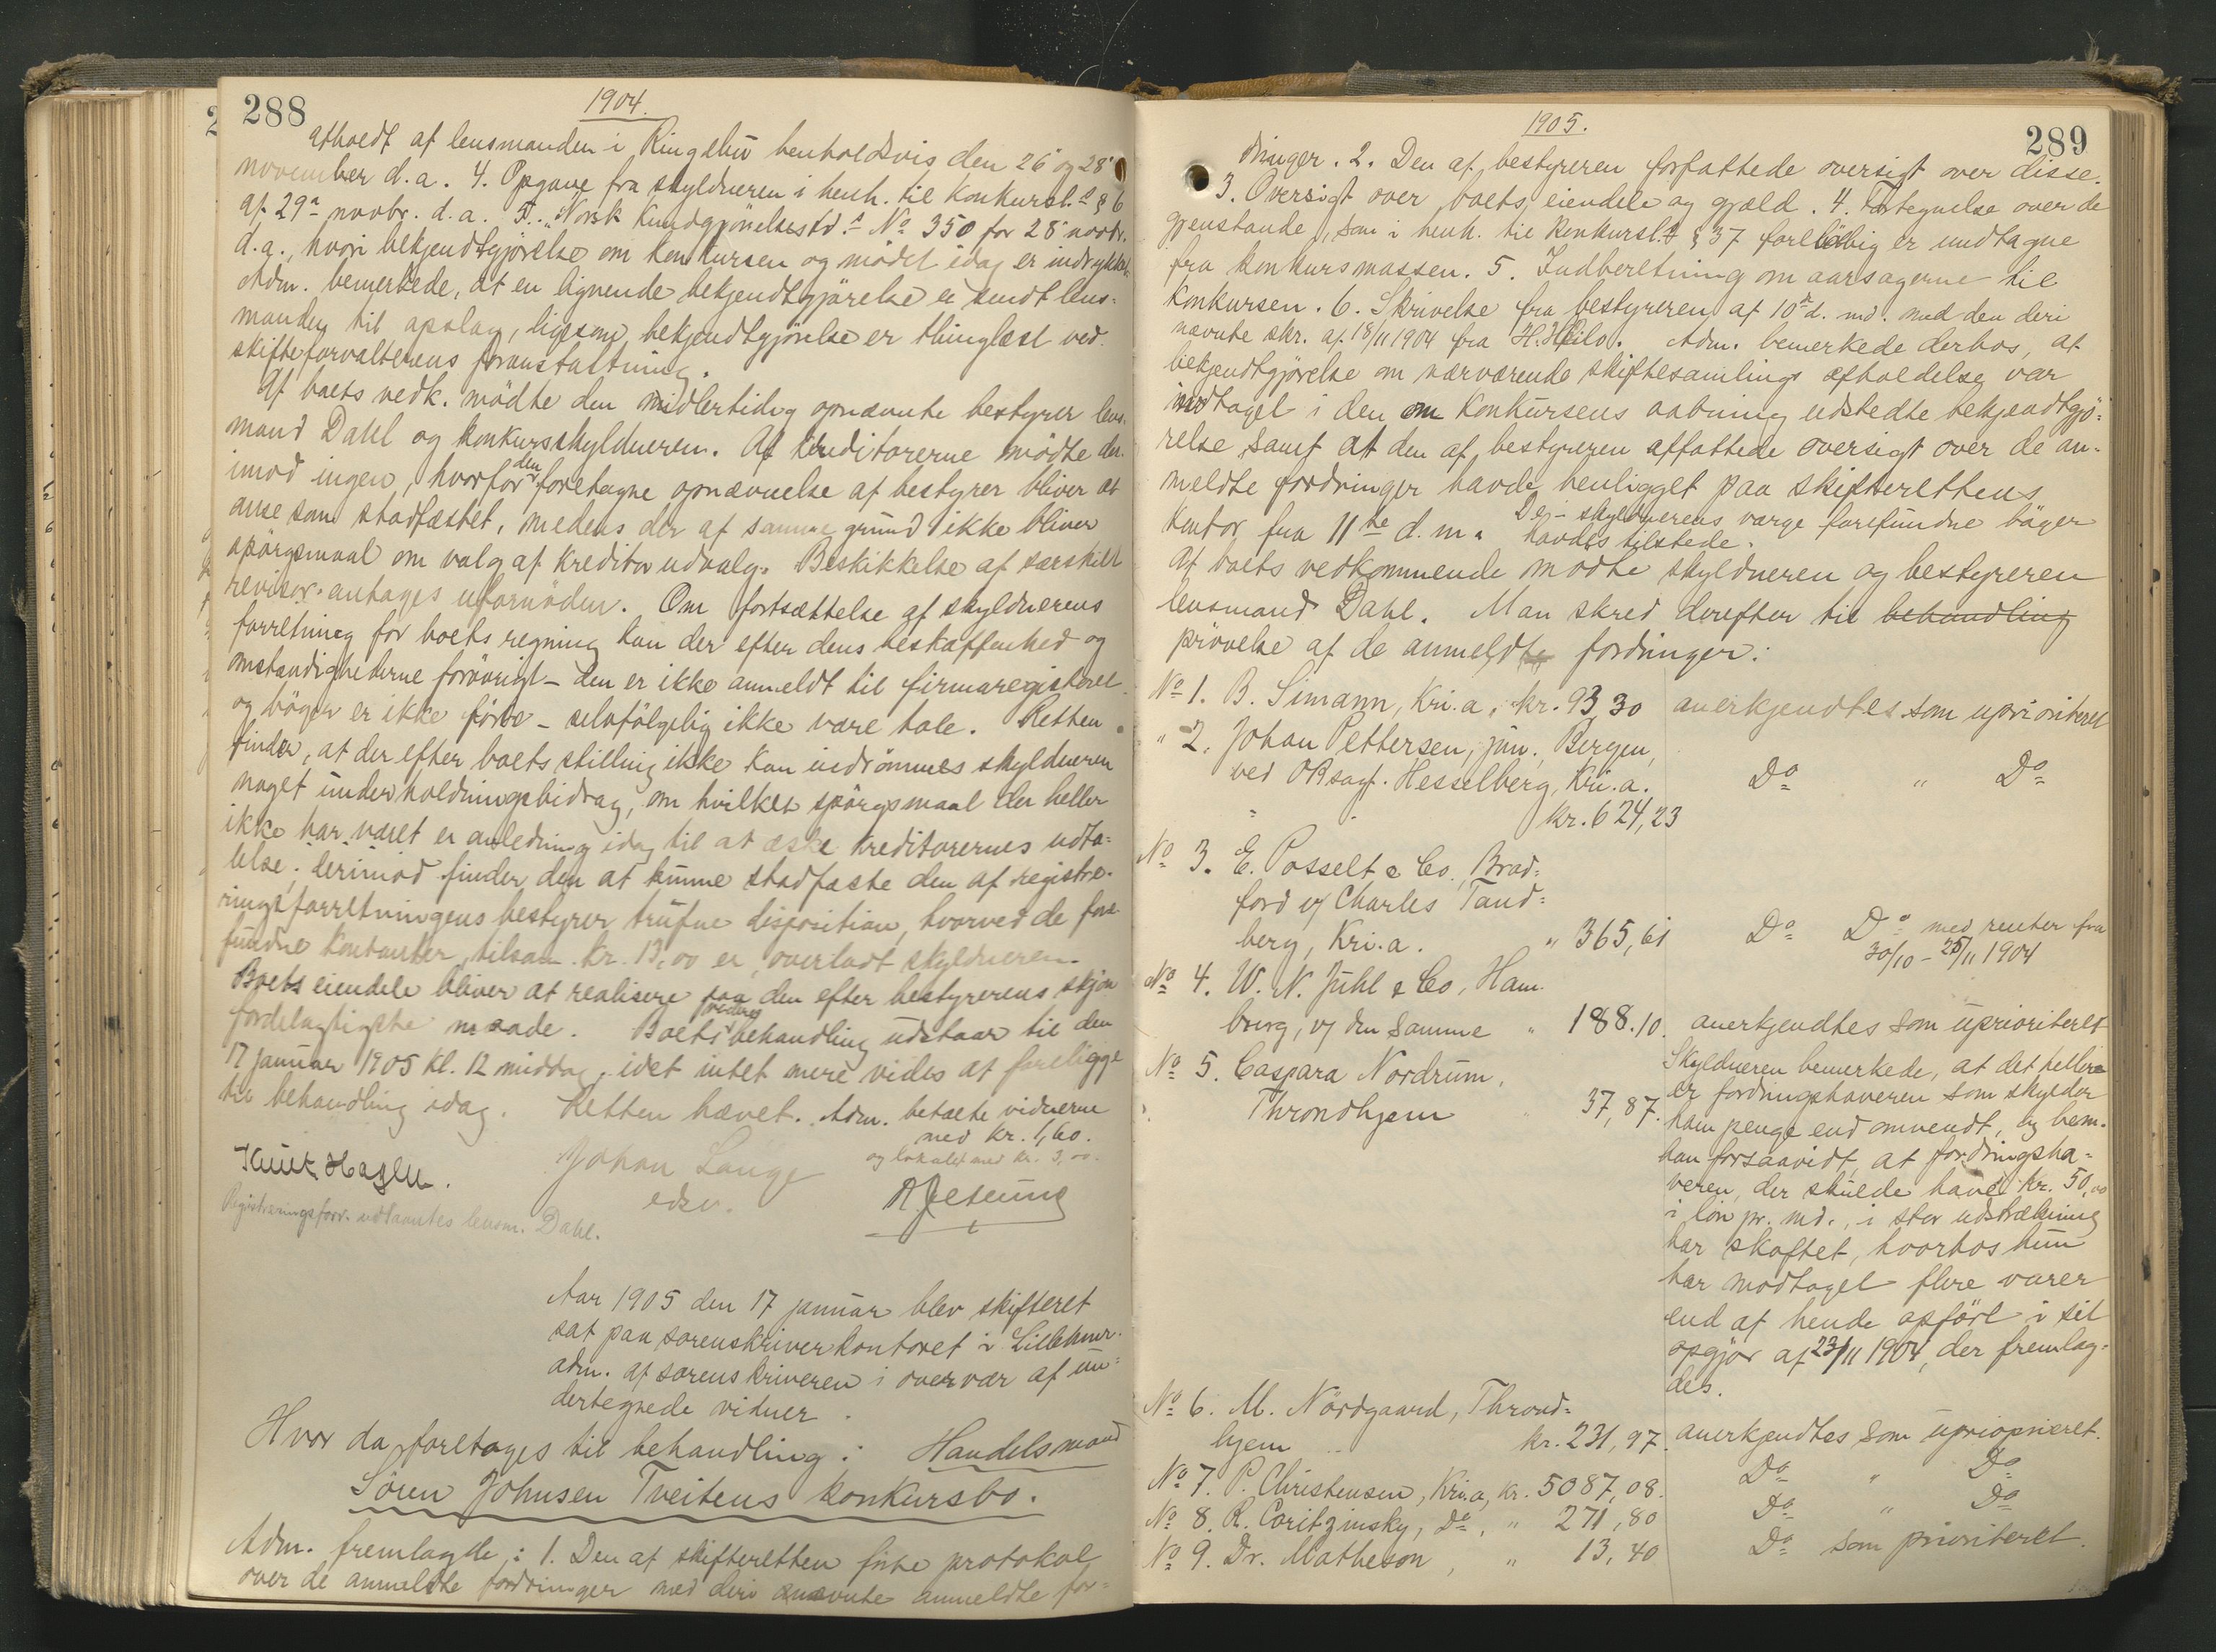 288
1904.
afholdt af lensmanden i Ringebu henholdsvis den 26' og 28'
november d.a. 4. Opgave fra skyldneren i henh. til konkursl.s § 6
af 29' novbr. d.a. 5. "Norsk Kundgjørelsestid." No 350 for 28' novbr.
d.a., hvori bekjendtgjørelse om konkursen og mødet idag er indrykket.
Adm. bemerkede, at en lignende bekjendtgjørelse er sendt lens-
manden til opslag, ligesom bekjendtgjørelse er thinglæst ved
skifteforvalterens foranstaltning.
Af boets vedk. mødte den midlertidig opnævnte bestyrer lens-
mand Dahl og konkursskyldneren. Af kreditorerne mødte der-
imod ingen, hvorfor den foretagne opnævnelse af bestyrer bliver at
anse som stadfæstet, medens der af samme grund ikke bliver
spørgsmaal om valg af kreditorudvalg. Beskikkelse af særskilt
revisor antages ufornøden. Om fortsættelse af skyldnerens
forretning for boets regning kan der efter dens beskaffenhed og
omstændighederne forøvrigt – den er ikke anmeldt til firmaregisteret
og bøger er ikke førte – selvfølgelig ikke være tale. Retten
finder, at der efter boets stilling ikke kan indrømmes skyldneren
noget underholdningsbidrag, om hvilket spørgsmaal der heller
ikke har været er anledning idag til at æske kreditorernes udta-
lelse; derimod finder den at kunne stadfæste den af registre-
ringsforretningens bestyrer trufne disposition, hvorved de fore-
fundne kontanter, tilsam. kr. 13,00 er overladt skyldneren.
Boets eiendele bliver at realisere paa den efter bestyrerens skjøn
fordelagtigste maade. Boets videre behandling udstaar til den
17 januar 1905 kl. 12 middag, idet intet mere vides at foreligge
til behandling idag. Retten hævet. Adm. betalte vidnerne
med kr. 1,60.
og lokalet med kr. 3,00.
Knut Haglu. Johan Lange
edsv.
Registreringsforr. udlaantes lensm. Dahl.
Aar 1905 den 17 januar blev skifteret
sat paa sorenskriverkontoret i Lillehmr.
adm. af sorenskriveren i overvær af un-
dertegnede vidner.
Hvor da foretages til behandling: Handelsmand
Sören Johnsen Tveitens konkursbo.
Adm. fremlagde: 1. Den af skifteretten førte protokol
over de anmeldte fordringer med deri nævnte anmeldte for-
1905.
289
dringer. 2. Den af bestyreren forfattede oversigt over disse.
3. Oversigt over boets eiendele og gjæld. 4. Fortegnelse over de
gjenstande, som i henh. til konkursl.s § 37 foreløbig er undtagne
fra konkursmassen. 5. Indberetning om aarsagerne til
konkursen. 6. Skrivelse fra bestyreren af 10de d. md. med den deri
nævnte skr. af 18/11 1904 fra H. Heilo. Adm. bemerkede derhos, at
bekjendtgjørelse om nærværende skiftesamlings afholdelse var
indtaget i den om konkursens aabning udstedte bekjendtgjø-
relse samt at den af bestyreren affattede oversigt over de an-
meldte fordringer havde henligget paa skifterettens
kontor fra 11te d.m. De i skyldnerens værge forefundne bøger
havdes tilstede.
Af boets vedkommende mødte skyldneren og bestyreren
lensmand Dahl. Man skred derefter til behandling
prøvelse af de anmeldte fordringer:
No 1. B. Simann, Kri.a, kr. 93,30 anerkjendtes som uprioriteret
" 2. Johan Pettersen, jun., Bergen,
ved ORsagf. Hesselberg, Kri.a. Do " Do
" " kr. 624,23
No 3. E. Posselt & Co., Brad-
ford v/ Charles Tand-
berg, Kri.a. " 365,61 Do Do med renter fra
30/10 – 25/11 1904
No 4. W. N. Juhl & Co, Ham-
burg, v/ den samme " 188.10. anerkjendtes som uprioriteret
No 5. Caspara Nordrum,
Throndhjem " 37,87.
Skyldneren bemerkede, at det hellere
er fordringshaveren som skylder
ham penge end omvendt, og bem.
han forsaavidt, at fordringsha-
veren, der skulde have kr. 50,00
i løn pr. md., i stor udstrækning
har skoftet, hvorhos hun
har modtaget flere varer
end af hende opført i sit
opgjør af 23/11 1904, der fremlag-
des.
No 6. M. Nördgaard, Thrond-
hjem kr. 231,97. anerkjendtes som uprioprieret.
No 7. P. Christensen, Kri.a, kr. 5087,08. Do " Do
No 8. R. Coritzinsky, Do, " 271,80 Do " Do
No 9. Dr. Matheson, " 13,40 Do som prioriteret.